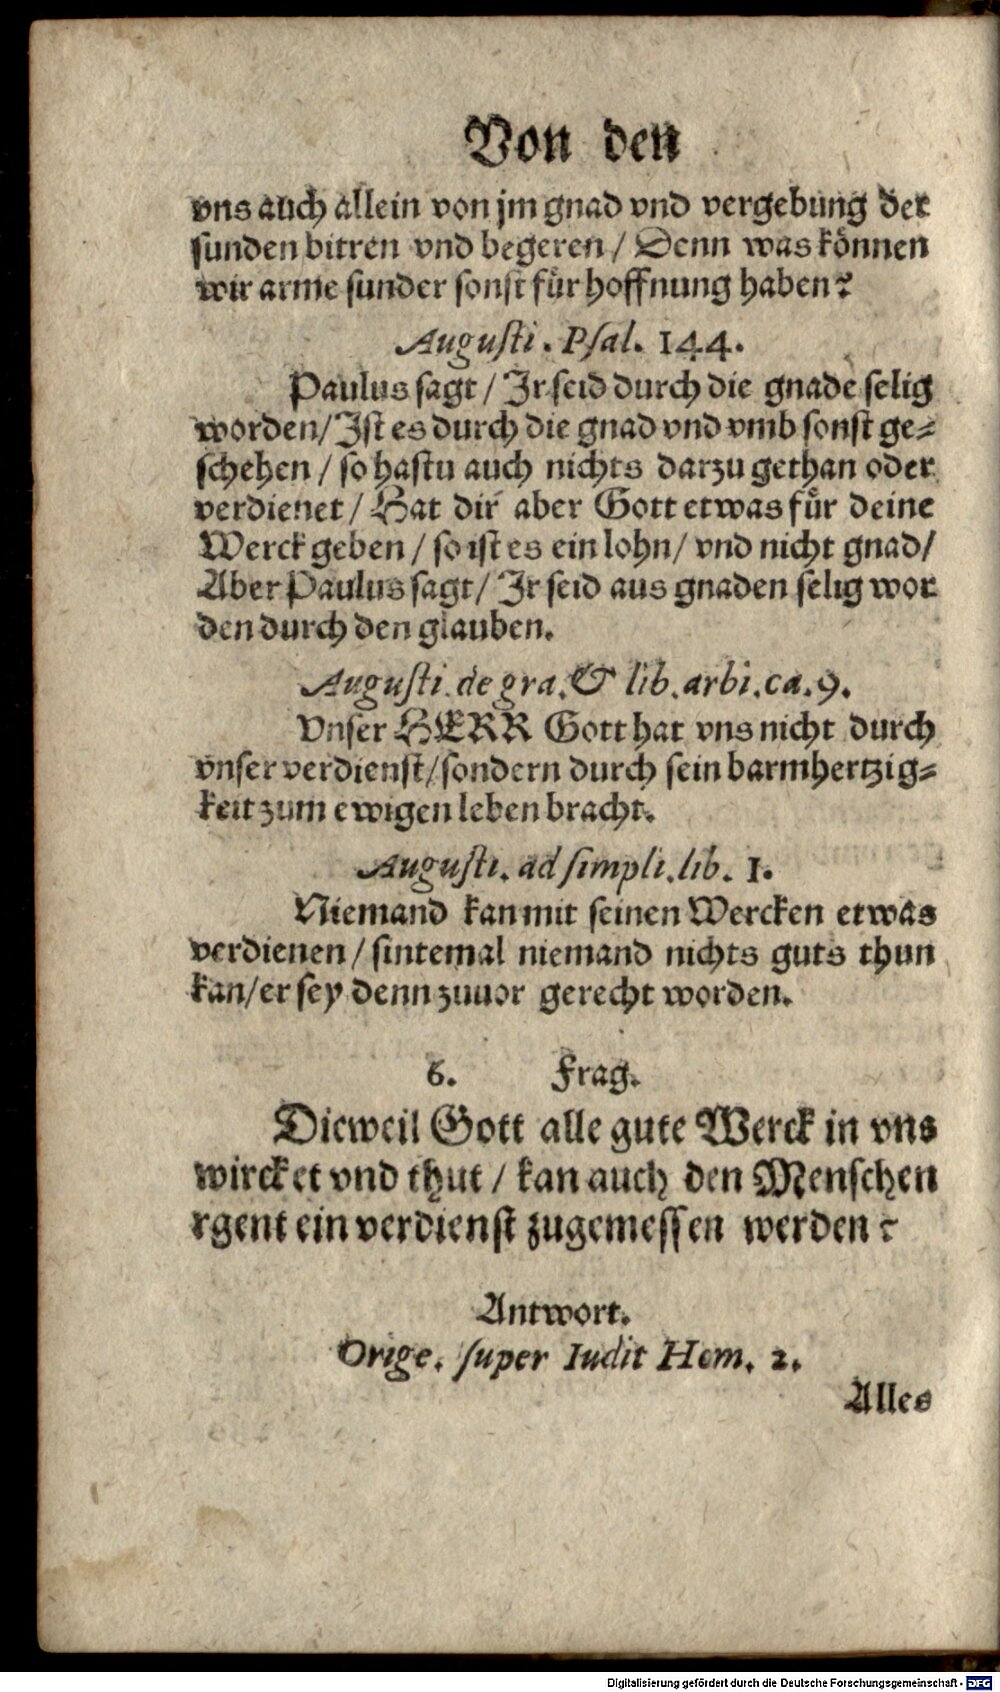 Von den
vns auch allein von jm gnad vnd vergebung der
sunden bitten vnd begeren / Denn was können
wir arme sunder sonst für hoffnung haben?
Augusti. Psal. 144.
Paulus sagt / Jr seid durch die gnade selig
worden/ Jst es durch die gnad vnd vmb sonst ge=
schehen / so hastu auch nichts darzu gethan oder
verdienet / Hat dir aber Gott etwas für deine
Werck geben / so ist es ein lohn/ vnd nicht gnad/
Aber Paulus sagt/ Jr seid aus gnaden selig wor
den durch den glauben.
Augusti. de gra. & lib. arbi. ca. 9.
Vnser HERR Gott hat vns nicht durch
vnser verdienst/ sondern durch sein barmhertzig=
keit zum ewigen leben bracht.
Augusti. ad simpli. lib. 1.
Niemand kan mit seinen Wercken etwas
verdienen / sintemal niemand nichts guts thun
kan/ er sey denn zuuor gerecht worden.
6. Frag.
Dieweil Gott alle gute Werck in vns
wircket vnd thut / kan auch den Menschen
rgent ein verdienst zugemessen werden?
Antwort.
Orige. super Iudit Hom. 2.
Alles
Digitalisierung gefördert durch die Deutsche Forschungsgemeinschaft - DFG